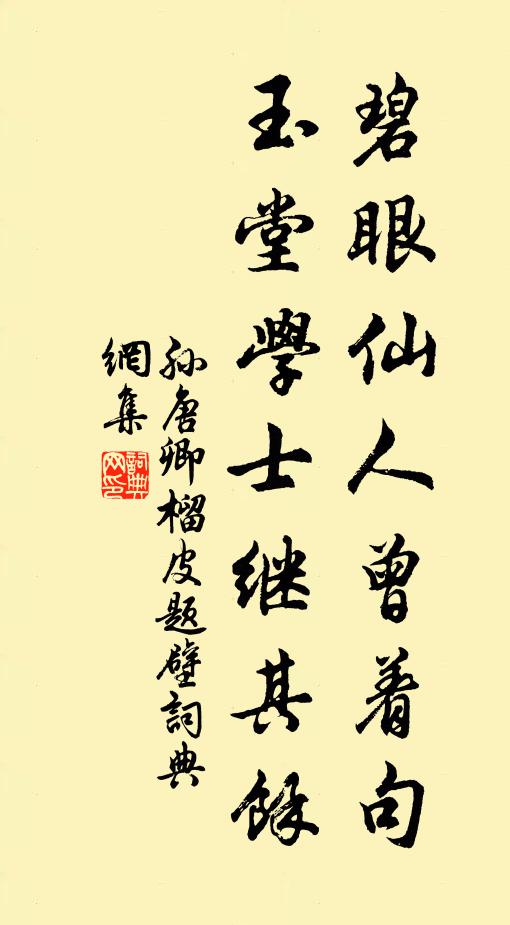 碧眼仙人曾着句
玉堂學士继其餘
孙唐卿榴皮题壁詞典
網集
詞典网印